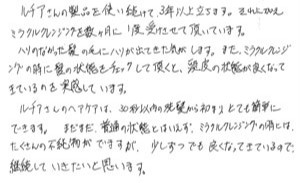 ルチアさんの製品を使い続けて、3年以上立ちます。それにかえ
ミラクルクレンジングを数ヶ月に1度受させて頂いています。
ハリのなかった髪の毛にハリが出てきた気がします。また、ミラクルクレンジ
ングの時に髪の状態をチェックして頂くと、頭皮の状態が良くなって
きているのを実感しています。
ルチアさんのヘアケアは、30秒以内の洗髪から初まりとても簡単に
できます。まだまだ、普通の状態とはいえず、ミラクルクレンジングの時には、
たくさんの不純物がでますが、少しずつでも良くなってきているので、
継続していきたいと思います。